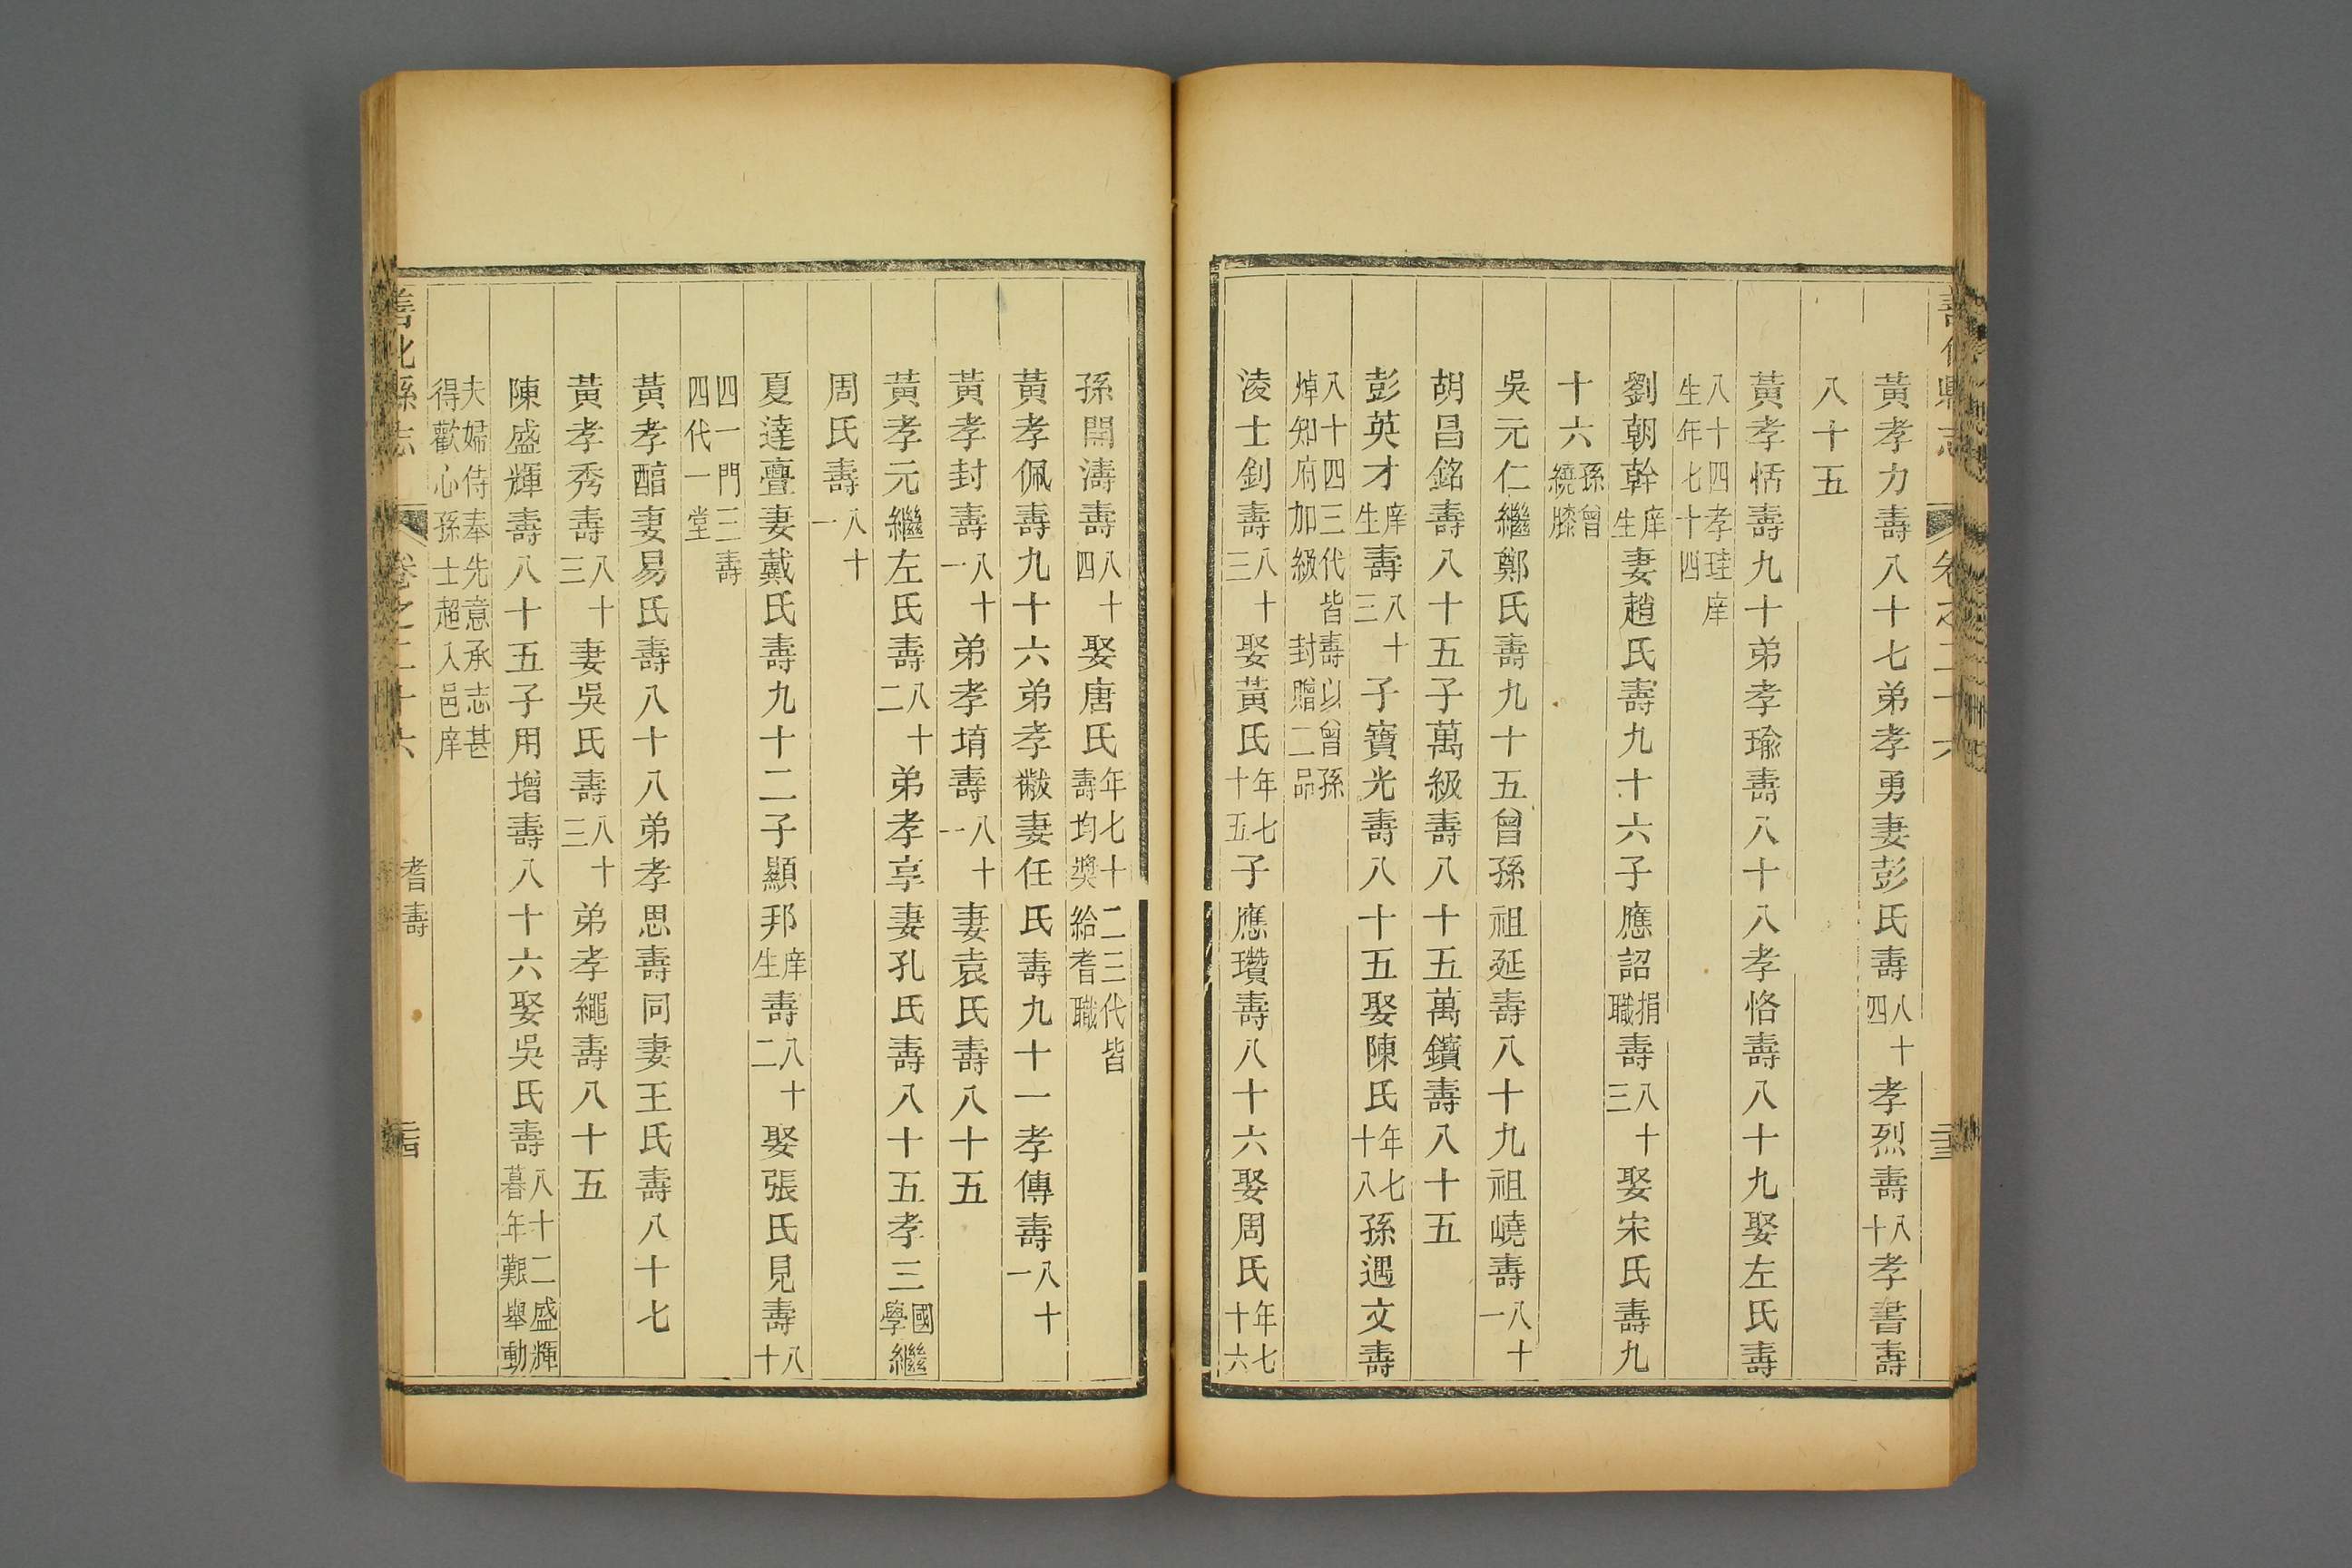 善化縣志 卷之二十六 二十三
黃孝力壽八十七弟孝勇妻彭氏壽八十四孝烈壽八十孝書壽
八十五
黃孝恬壽九十弟孝瑜壽八十八孝恪壽八十九娶左氏壽
八十四孝珪庠生年七十四
劉朝幹庠生妻趙氏壽九十六子應詔捐職壽八十三娶宋氏壽九
十六孫曾繞膝
吳元仁繼鄭氏壽九十五曾孫祖延壽八十九祖嶢壽八十一
胡昌銘壽八十五子萬級壽八十五萬鑽壽八十五
彭英才庠生壽八十三子寶光壽八十五娶陳氏年七十八孫遇文壽
八十四三代皆壽以曾孫焯知府加級封贈二品
淩士釗壽八十三娶黃氏年七十五子應瓚壽八十六娶周氏年七十六
孫開濤壽八十四娶唐氏年七十二三代皆壽均獎給耆職
黃孝佩壽九十六弟孝黻妻任氏壽九十一孝傳壽八十一
黃孝封壽八十一弟孝堉壽八十一妻袁氏壽八十五
黃孝元繼左氏壽八十二弟孝享妻孔氏壽八十五孝三國學繼
周氏壽八十一
夏達亹妻戴氏壽九十二子顯邦庠生壽八十二娶張氏見壽八十
四一門三壽四代一堂
黃孝醕妻易氏壽八十八弟孝思壽同妻王氏壽八十七
黃孝秀壽八十三妻吳氏壽八十三弟孝繩壽八十五
陳盛輝壽八十五子用增壽八十六娶吳氏壽八十二盛輝暮年艱舉動
夫婦侍奉先意承志甚得歡心孫士超入邑庠
善化縣志 卷之二十六 耆壽 二十四